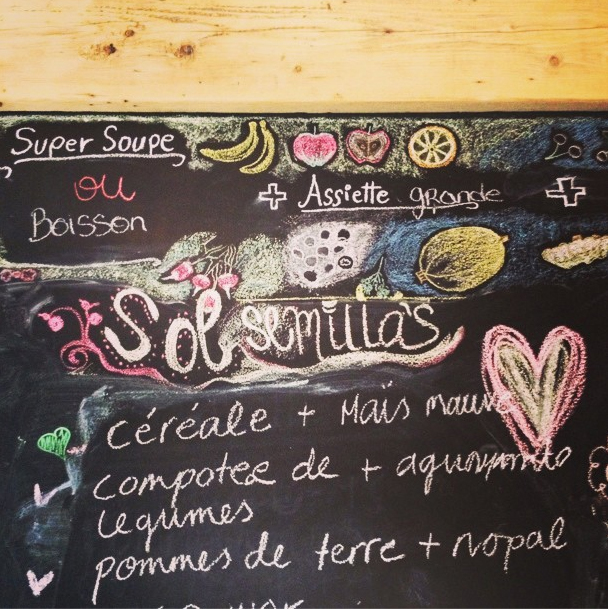 Super Soupe
ou
Boisson
+ Assiette grande +
Sol semillas
céréale + Maïs mauve
compotee de +
Legumes
pommes de terre + nopal